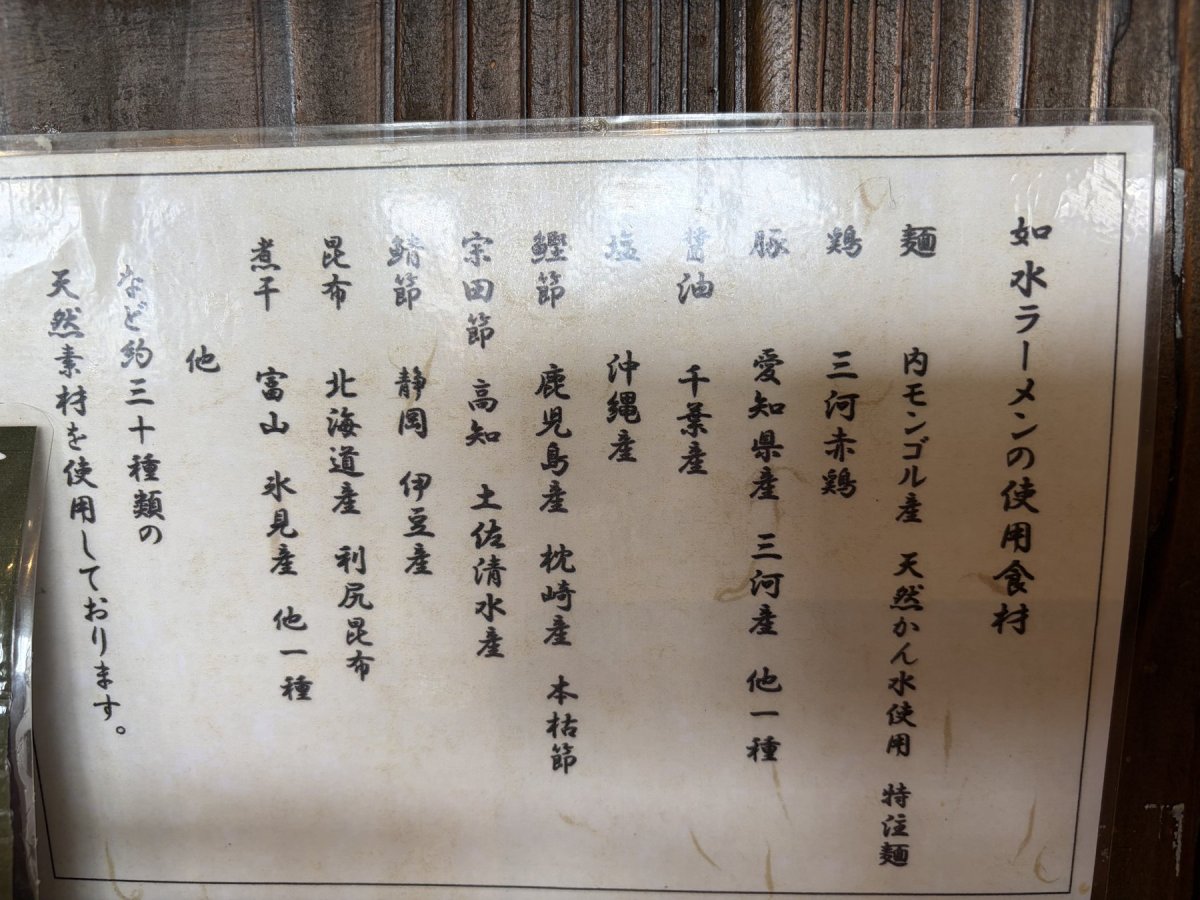 如水ラーメンの使用食材
麺 内モンゴル産 天然かん水使用 特注麺
鶏 三河赤鶏
豚 愛知県産 三河産 他一種
醤油 千葉産
塩 沖縄産
鰹節 鹿児島産 枕崎産 本枯節
宗田節 高知 土佐清水産
鯖節 静岡 伊豆産
昆布 北海道産 利尻昆布
煮干 富山 氷見産 他一種
他
など約三十種類の
天然素材を使用しております。